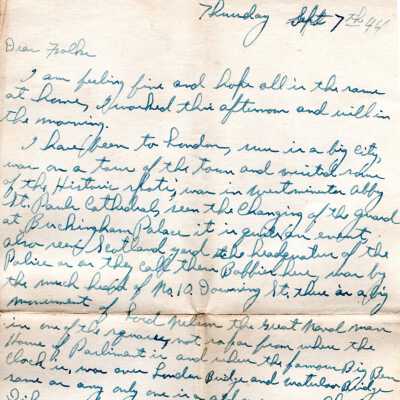 Thursday Sept 7th 44
Dear Folks
I am feeling fine and hope all is the same
at home, I worked this afternoon and will in
the morning.
I have been to London, sure is a big city,
was on a tour of the town and visited some
of the Historic spots, was in Westminster Abby
St. Pauls Cathedral, seen the Changing of the guard
at Buckingham Palace it is quite an event,
also seen Scotland yard the headquarter of the
Police or as they call them Bobbies here, was by
the much heard of No. 10 Downing St. there is a big
monument of Lord Nelson the Great Naval man
in one of the squares, not so far from where the
Home of Parliment is and where the famous Big Ben
Clock is, was over London Bridge and Waterloo Bridge
same as any only one is